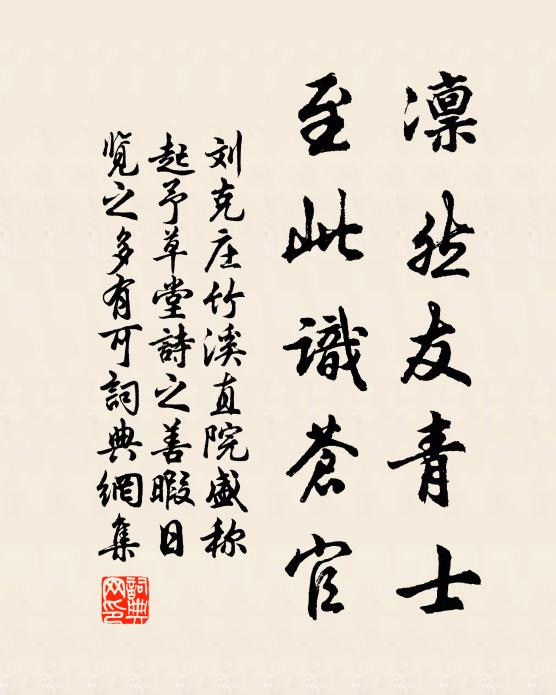 凛然友青士
至此識蒼官
刘克庄竹溪直院盛称
起予草堂詩之善暇日
览之多有可詞典網集
詞典網印